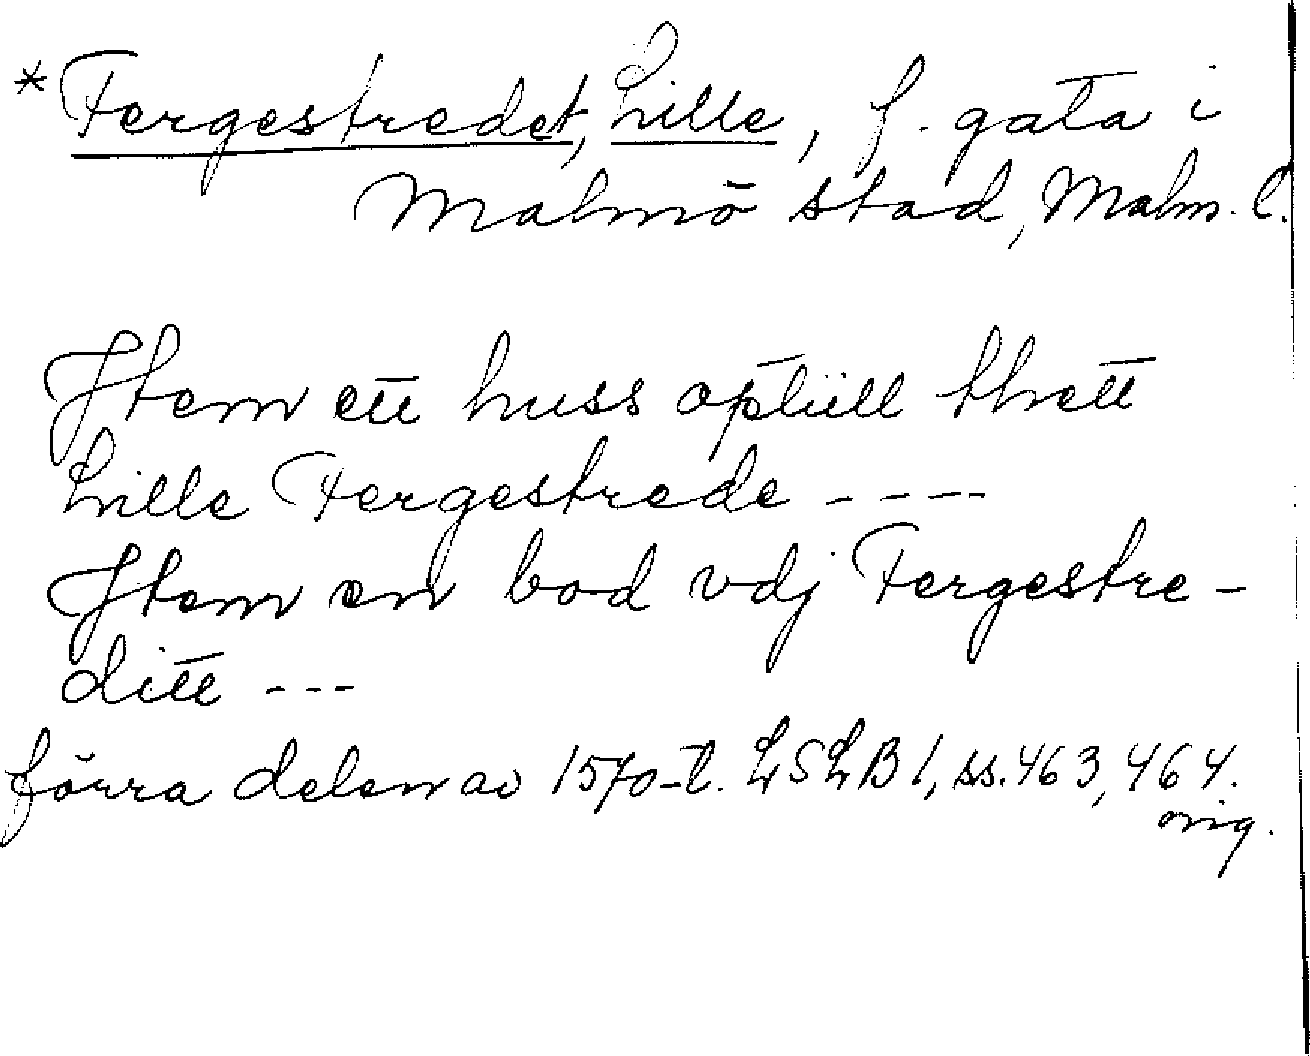 * Fergestredet, Lille, f. gata i
Malmö stad, Malm. l.
Jtem ett huss optiill thett
Lille Fergestrede ----
Jtem en bod vdj Fergestre-
ditt ---
förra delen av 1570-t. LSLB 1, ss. 463, 464.
orig.